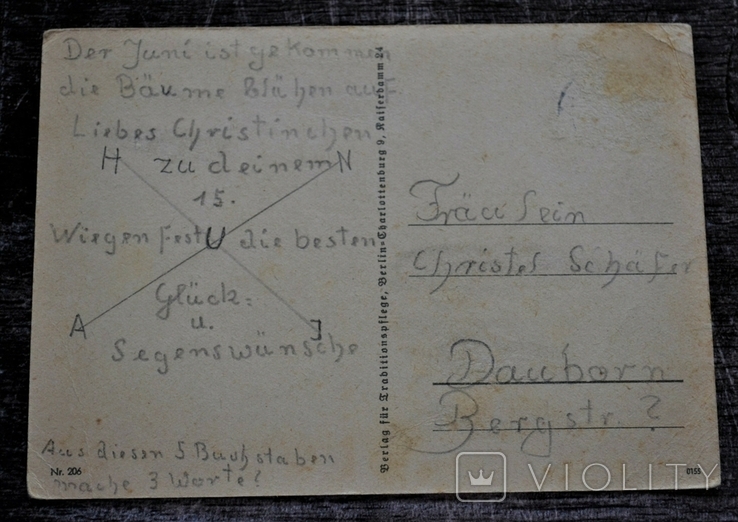 Der Juni ist gekommen
die Bäume blühen auf.
Liebes Christinchen
H zu deinem N
15.
Wiegenfest U die besten
Glück=
u.
A J
Segenswünsche
Aus diesen 5 Buchstaben
mache 3 Worte?
Nr. 206
Verlag für Traditionspflege, Berlin=Charlottenburg 9, Kaiserdamm 24
Fräulein
Christel Schäfer
Dauborn
Bergstr. ?
0155
VIOLITY